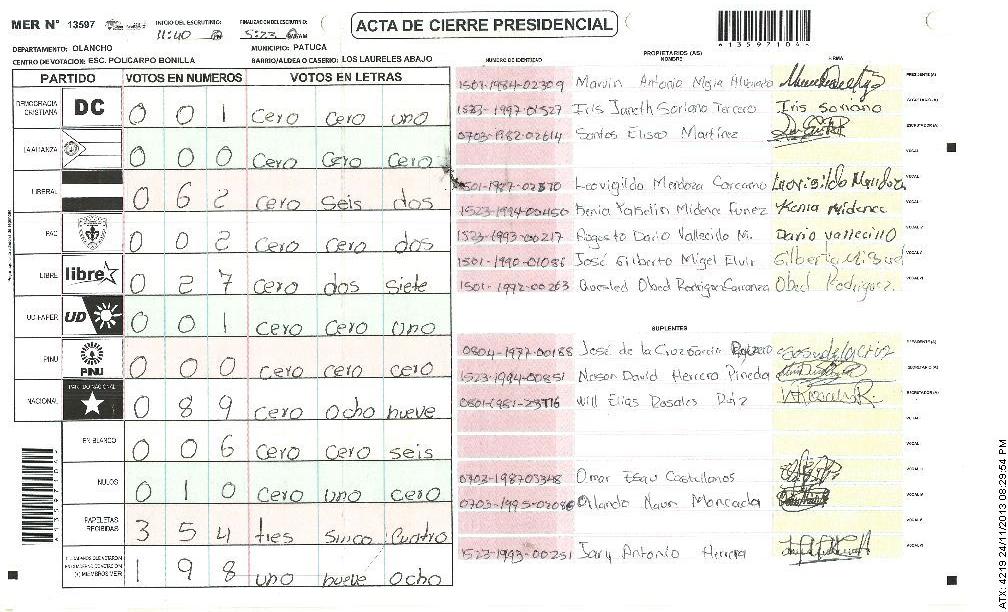 MER N° 13597
INICIO DEL ESCRUTINIO:
11:40
FINALIZACION DEL ESCRUTINIO:
5:23
ACTA DE CIERRE PRESIDENCIAL
DEPARTAMENTO: OLANCHO
MUNICIPIO: PATUCA
CENTRO DE VOTACION: ESC. POLICARPO BONILLA
BARRIO/ALDEA O CASERIO: LOS LAURELES ABAJO
PARTIDO VOTOS EN NUMEROS VOTOS EN LETRAS
DEMOCRACIA CRISTIANA DC 0 0 1 cero cero uno
LA ALIANZA 0 0 0 cero cero cero
LIBERAL 0 6 2 cero seis dos
PAC 0 0 2 cero cero dos
LIBRE libre 0 2 7 cero dos siete
UD-FAPER UD 0 0 1 cero cero uno
PINU PINU 0 0 0 cero cero cero
NACIONAL PARTIDO NACIONAL 0 8 9 cero ocho nueve
EN BLANCO 0 0 6 cero cero seis
NULOS 0 1 0 cero uno cero
PAPELETAS RECIBIDAS 3 5 4 tres sinco cuatro
1 9 8 uno nueve ocho
PROPIETARIOS (AS)
NUMERO DE IDENTIDAD NOMBRE FIRMA
1501-1984-02309 Marvin Antonio PRESIDENTE(A)
1523-1997-01527 Iris Janeth Soriano Tercero Iris Soriano SECRETARIO(A)
0703-1982-02614 Santos Eliseo Martinez ESCRUTADOR(A)
VOCAL I
1501-1987-02870 Leovigildo Mendoza Leovigildo Mendoza
1523-1994-00450 Kenia Midence Funez Kenia Midence
1523-1993-00217 Rogosto Dario Vallecillo M. Dario Vallecillo
1501-1990-01086 José Gilberto Migel Gilberto Miguel
1501-1992-00263 Obed Obed Rodriguez.
SUPLENTES
0804-1977-00188 José de la Cruz Garcia PRESIDENTE(A)
1523-1994-00851 Nelson David Herrera Pineda SECRETARIO(A)
Will Elias Rosales ESCRUTADOR(A)
0703-198703348 Omar Esau Castellanos
Orlando Naun Moncada
1523-1993-00251 Jary Antonio Herrera
ATX: 4219 24/11/2013 08:29:54 PM